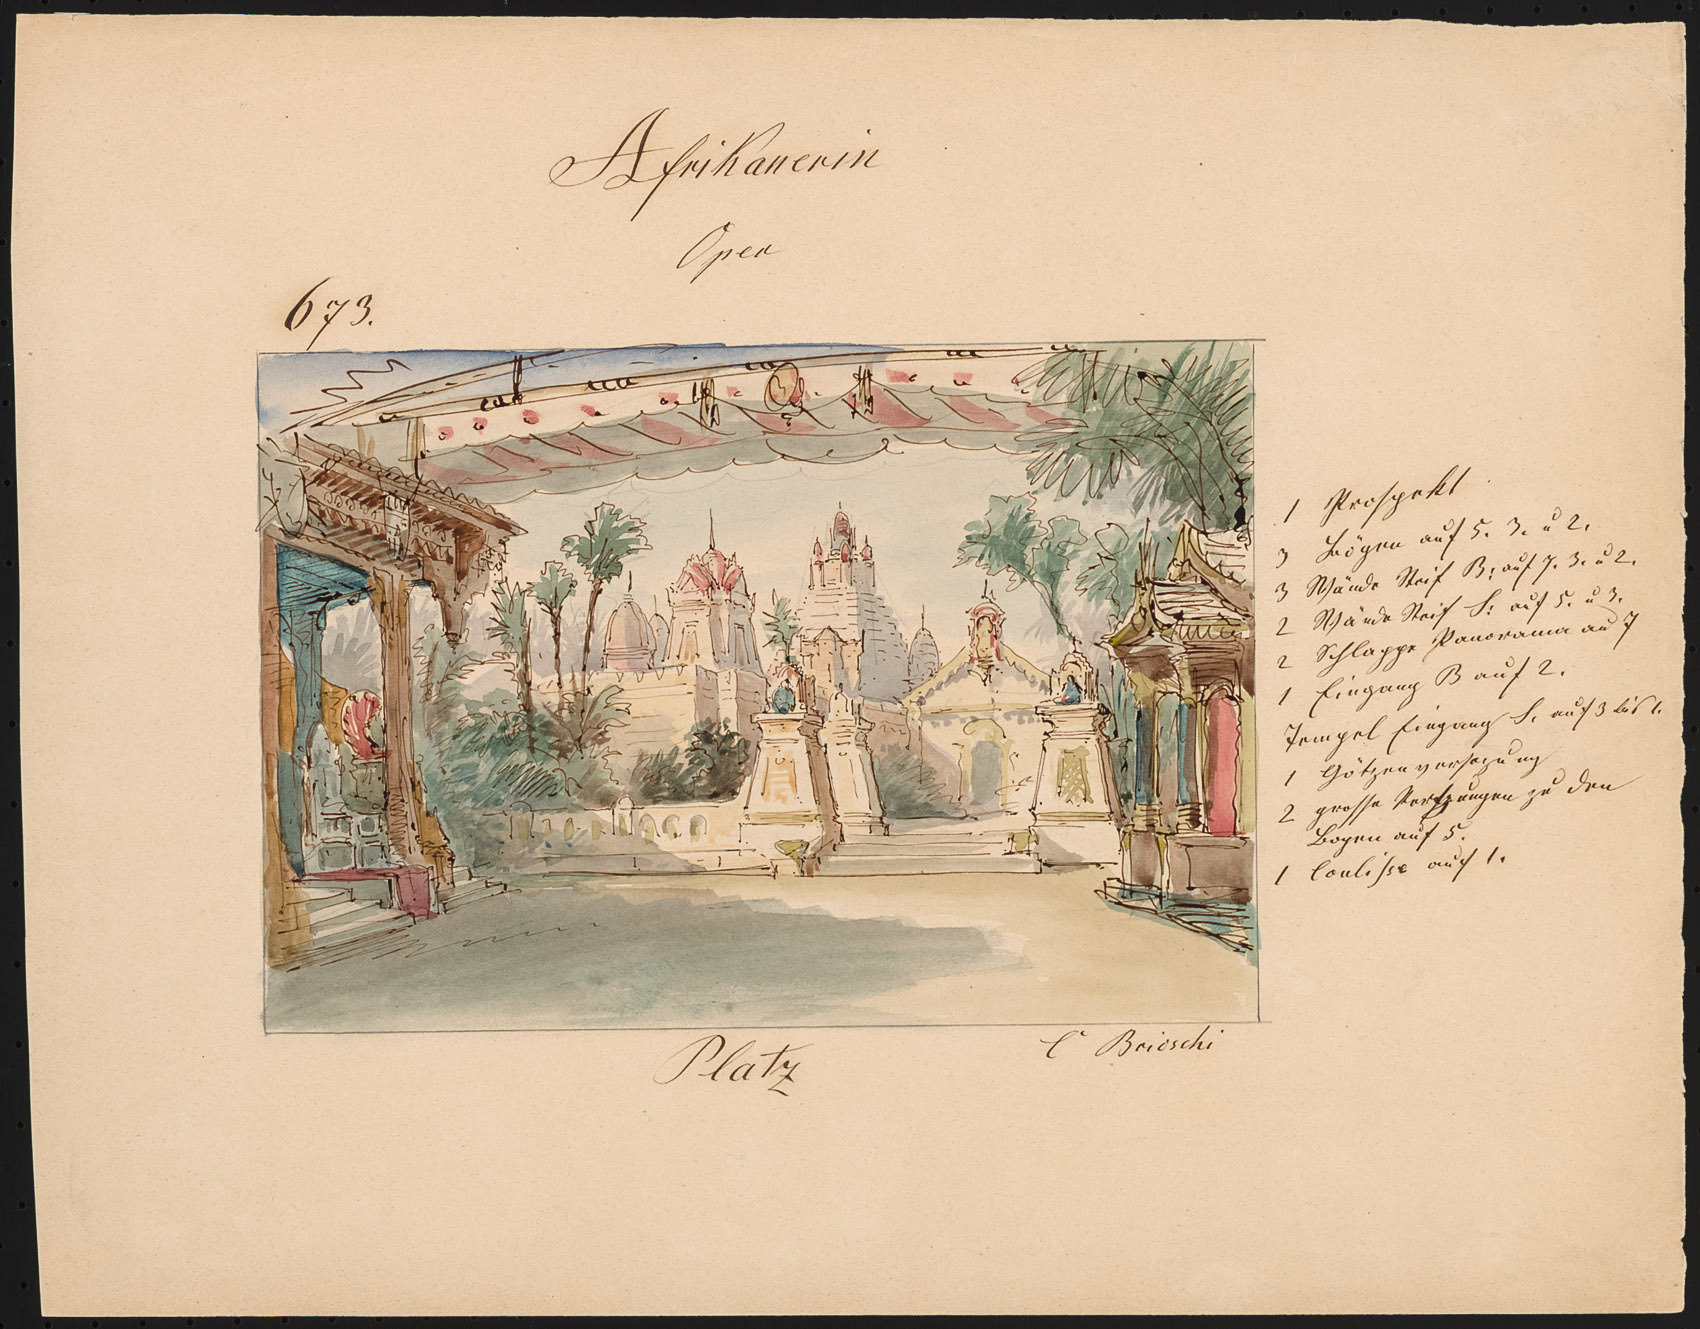 Afrikanerin
Oper
673.
1 Prospekt
3 Bögen auf 5. 3. u 2.
3 Wände Steif B: auf 7. 3. u 2.
2 Wände Steif S: auf 5. u 3.
2 Schlappe Panorama auf 7
1 Eingang B auf 2.
Tempel Eingang S. auf 3 bis 1.
1 Götzenversezung
2 grosse Versezungen zu den
Bogen auf 5.
1 Coulisse auf 1.
Platz
C Brioschi